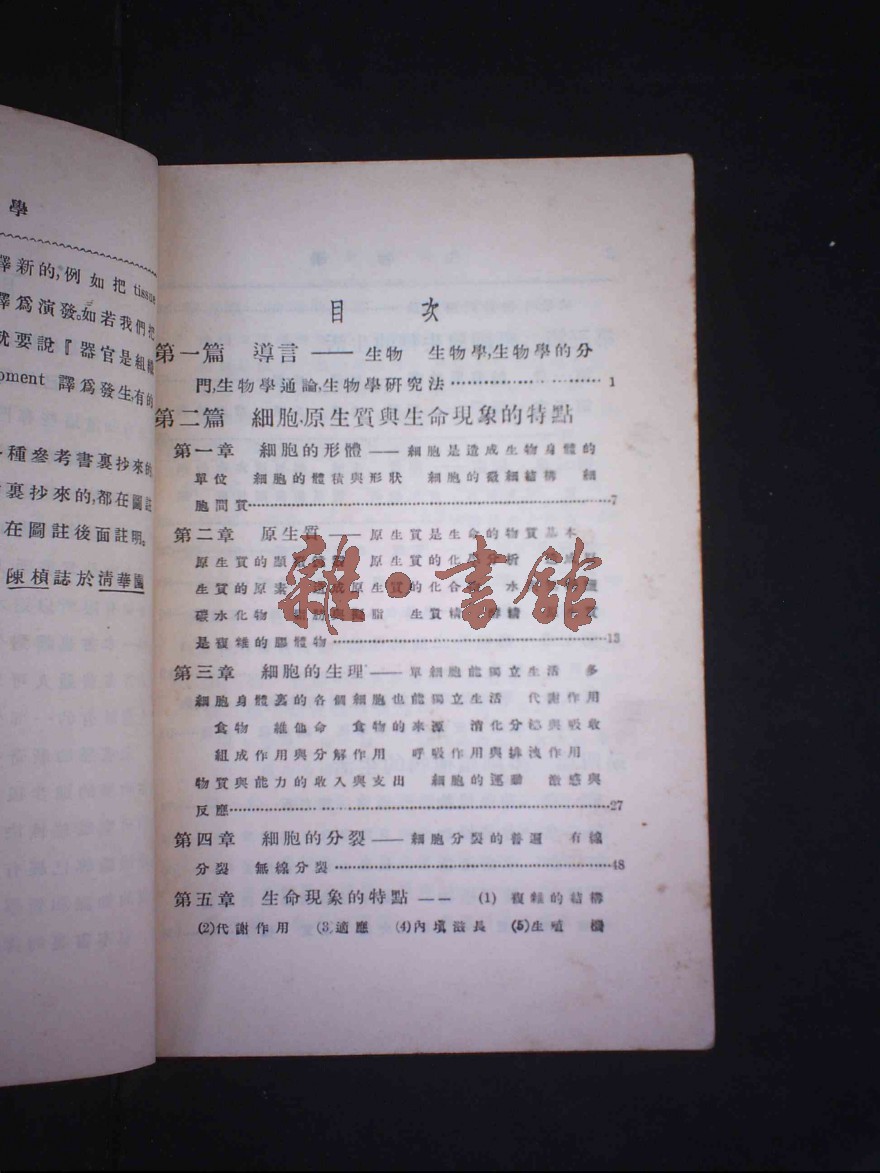 學
譯新的,例如把 tissue
譯爲演發。如若我們把
就要說『器官是組織
opment 譯爲發生,有的
種參考書裏抄來的
裏抄來的,都在圖註
在圖註後面註明。
陳楨誌於清華園
目 次
第一篇 導言 —— 生物 生物學,生物學的分
門,生物學通論,生物學研究法 1
第二篇 細胞,原生質與生命現象的特點
第一章 細胞的形體 —— 細胞是造成生物身體的
單位 細胞的體積與形狀 細胞的微細結構 細
胞間質 7
第二章 原生質 —— 原生質是生命的物質基本
原生質的 原生質的化學分析
生質的原素 造成原生質的化合物 水
碳水化物 脂 生質
是複雜的膠體物 13
第三章 細胞的生理 —— 單細胞能獨立生活 多
細胞身體裏的各個細胞也能獨立生活 代謝作用
食物 維他命 食物的來源 消化分泌與吸收
組成作用與分解作用 呼吸作用與排洩作用
物質與能力的收入與支出 細胞的運動 激感與
反應 27
第四章 細胞的分裂 —— 細胞分裂的普遍 有線
分裂 無線分裂 48
第五章 生命現象的特點 —— (1) 複雜的結構
(2)代謝作用 (3)適應 (4)內填滋長 (5)生殖 機
雜·書館